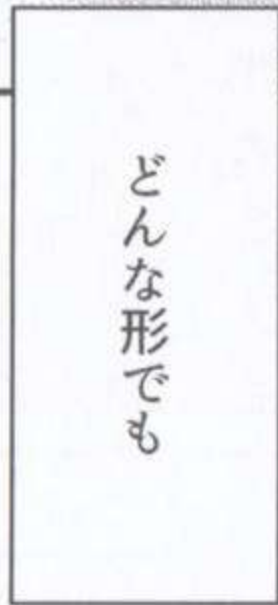 どんな形でも